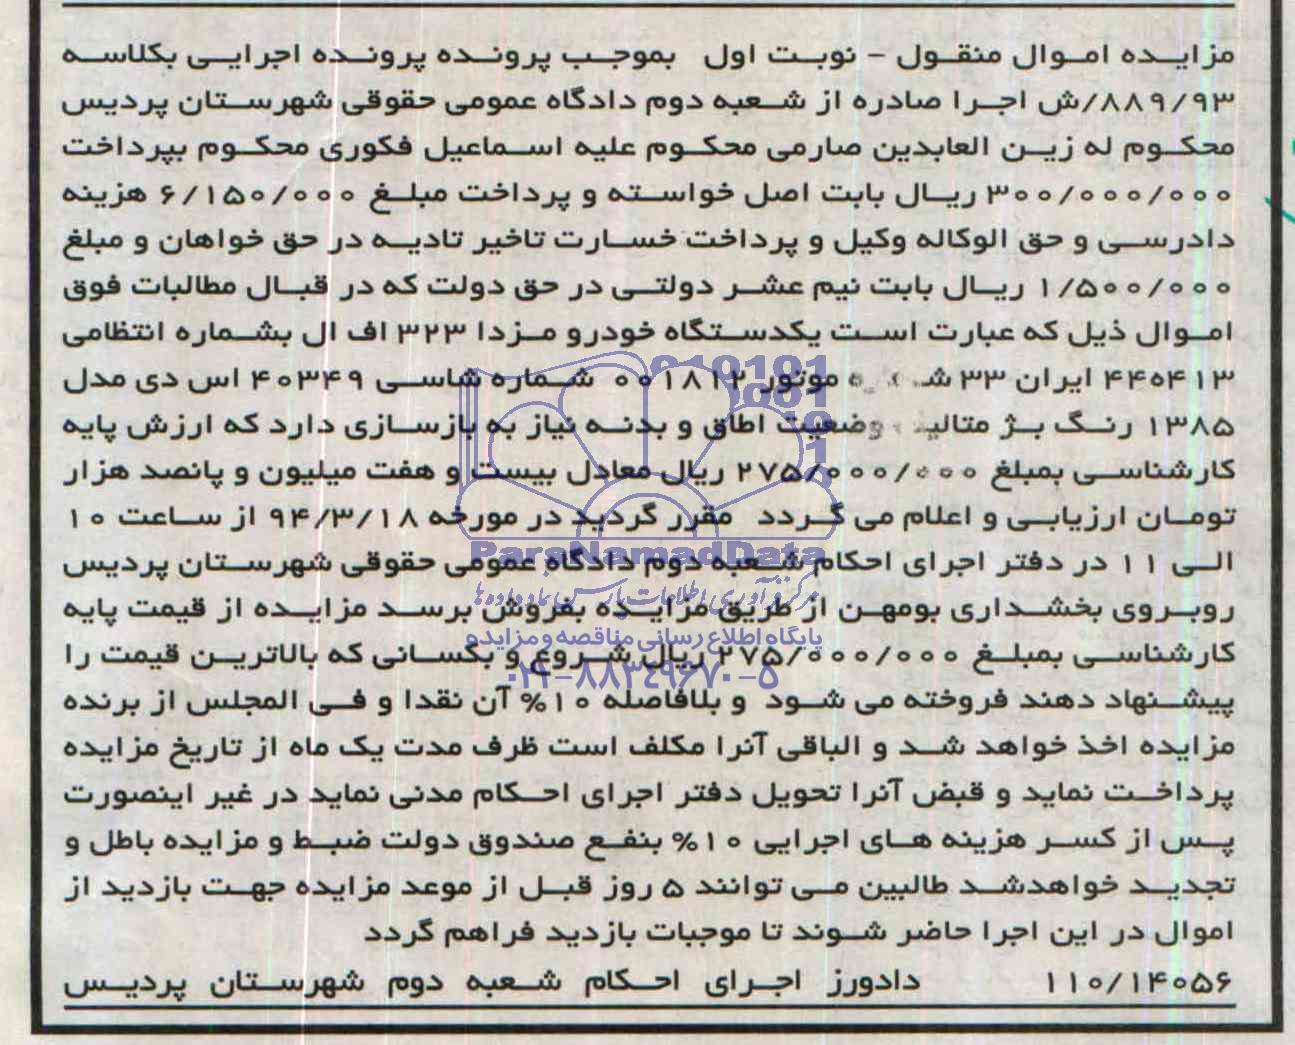 مزایده اموال منقول - نوبت اول بموجب پرونده پرونده اجرایی بکلاسه
۸۸۹/۹۳/ش اجرا صادره از شعبه دوم دادگاه عمومی حقوقی شهرستان پردیس
محکوم له زین العابدین صارمی محکوم علیه اسماعیل فکوری محکوم بپرداخت
۳۰۰/۰۰۰/۰۰۰ ریال بابت اصل خواسته و پرداخت مبلغ ۶/۱۵۰/۰۰۰ هزینه
دادرسی و حق الوکاله وکیل و پرداخت خسارت تاخیر تادیه در حق خواهان و مبلغ
۱/۵۰۰/۰۰۰ ریال بابت نیم عشر دولتی در حق دولت که در قبال مطالبات فوق
اموال ذیل که عبارت است یکدستگاه خودرو مزدا ۳۲۳ اف ال بشماره انتظامی
۴۴۵۴۱۳ ایران ۳۳ موتور ۰۰۱۸۱۲ شماره شاسی ۴۰۳۴۹ اس دی مدل
۱۳۸۵ رنگ بژ وضعیت اطاق و بدنه نیاز به بازسازی دارد که ارزش پایه
کارشناسی بمبلغ ۲۷۵/۰۰۰/۰۰۰ ریال معادل بیست و هفت میلیون و پانصد هزار
تومان ارزیابی و اعلام می گردد مقرر گردید در مورخه ۹۴/۳/۱۸ از ساعت ۱۰
الی ۱۱ در دفتر اجرای احکام شعبه دوم دادگاه عمومی حقوقی شهرستان پردیس
روبروی بخشداری بومهن از طریق مزایده بفروش برسد مزایده از قیمت پایه
کارشناسی بمبلغ ۲۷۵/۰۰۰/۰۰۰ ریال شروع و بکسانی که بالاترین قیمت را
پیشنهاد دهند فروخته می شود و بلافاصله ۱۰% آن نقدا و فی المجلس از برنده
مزایده اخذ خواهد شد و الباقی آنرا مکلف است ظرف مدت یک ماه از تاریخ مزایده
پرداخت نماید و قبض آنرا تحویل دفتر اجرای احکام مدنی نماید در غیر اینصورت
پس از کسر هزینه های اجرایی ۱۰% بنفع صندوق دولت ضبط و مزایده باطل و
تجدید خواهدشد طالبین می توانند ۵ روز قبل از موعد مزایده جهت بازدید از
اموال در این اجرا حاضر شوند تا موجبات بازدید فراهم گردد
۱۱۰/۱۴۰۵۶ دادورز اجرای احکام شعبه دوم شهرستان پردیس
ParaNamadData
پایگاه اطلاع رسانی مناقصه و مزایده
۰۲۱-۸۸۳۴۹۶۷۰-۵